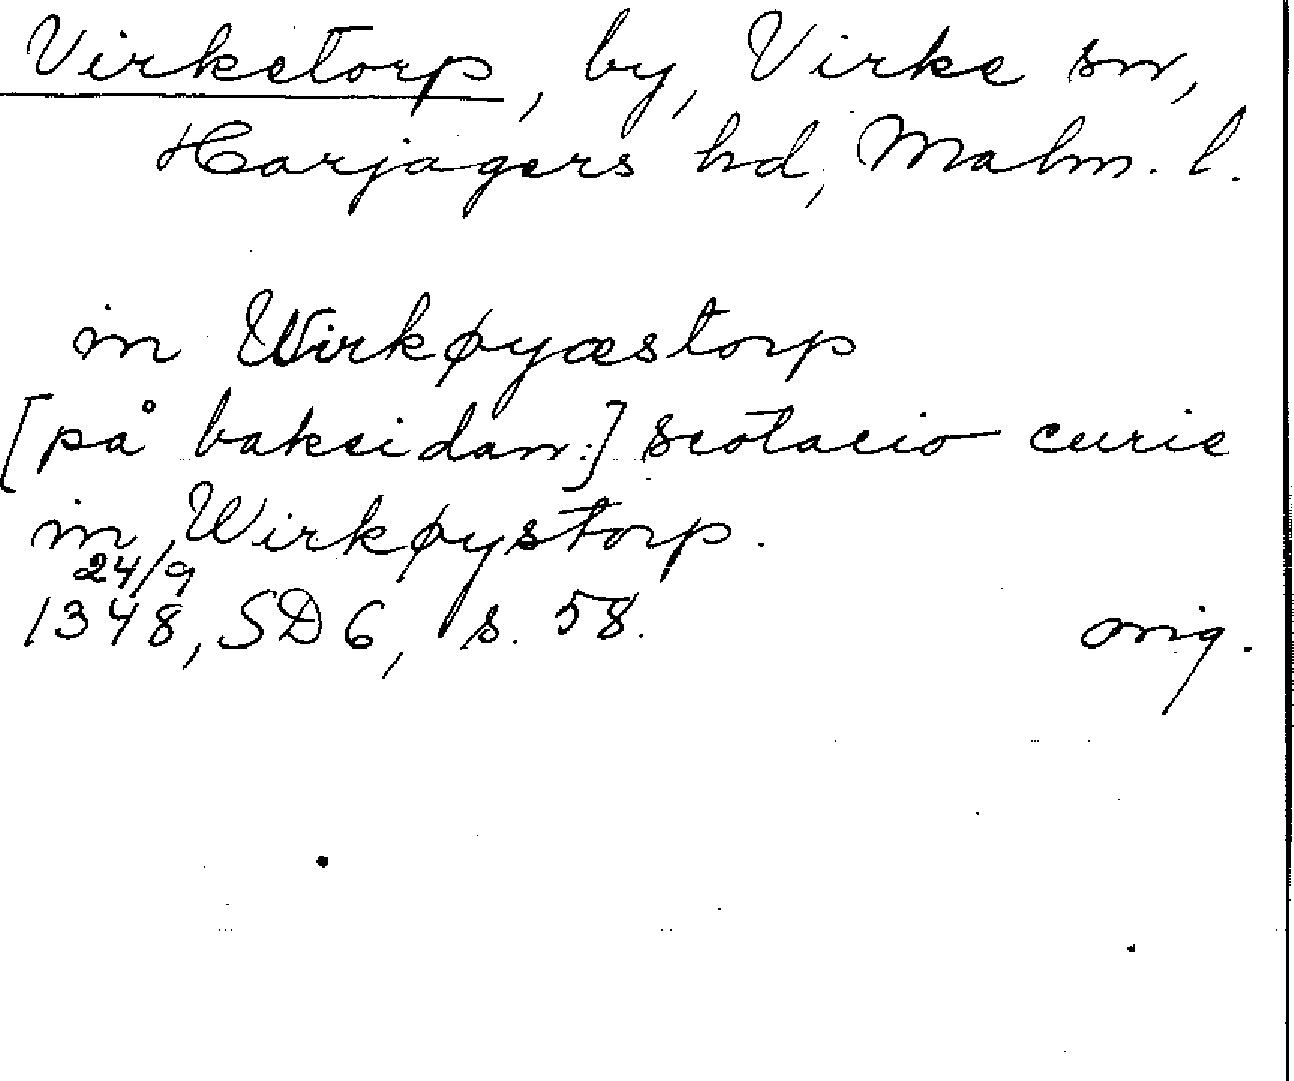 Virketorp, by, Virke sn,
Harjagers hd, Malm. l.
in Wirkøyæstorp
[på baksidan:] scotacio curie
in Wirkøystorp.
24/9
1348, SD 6, s. 58. orig.